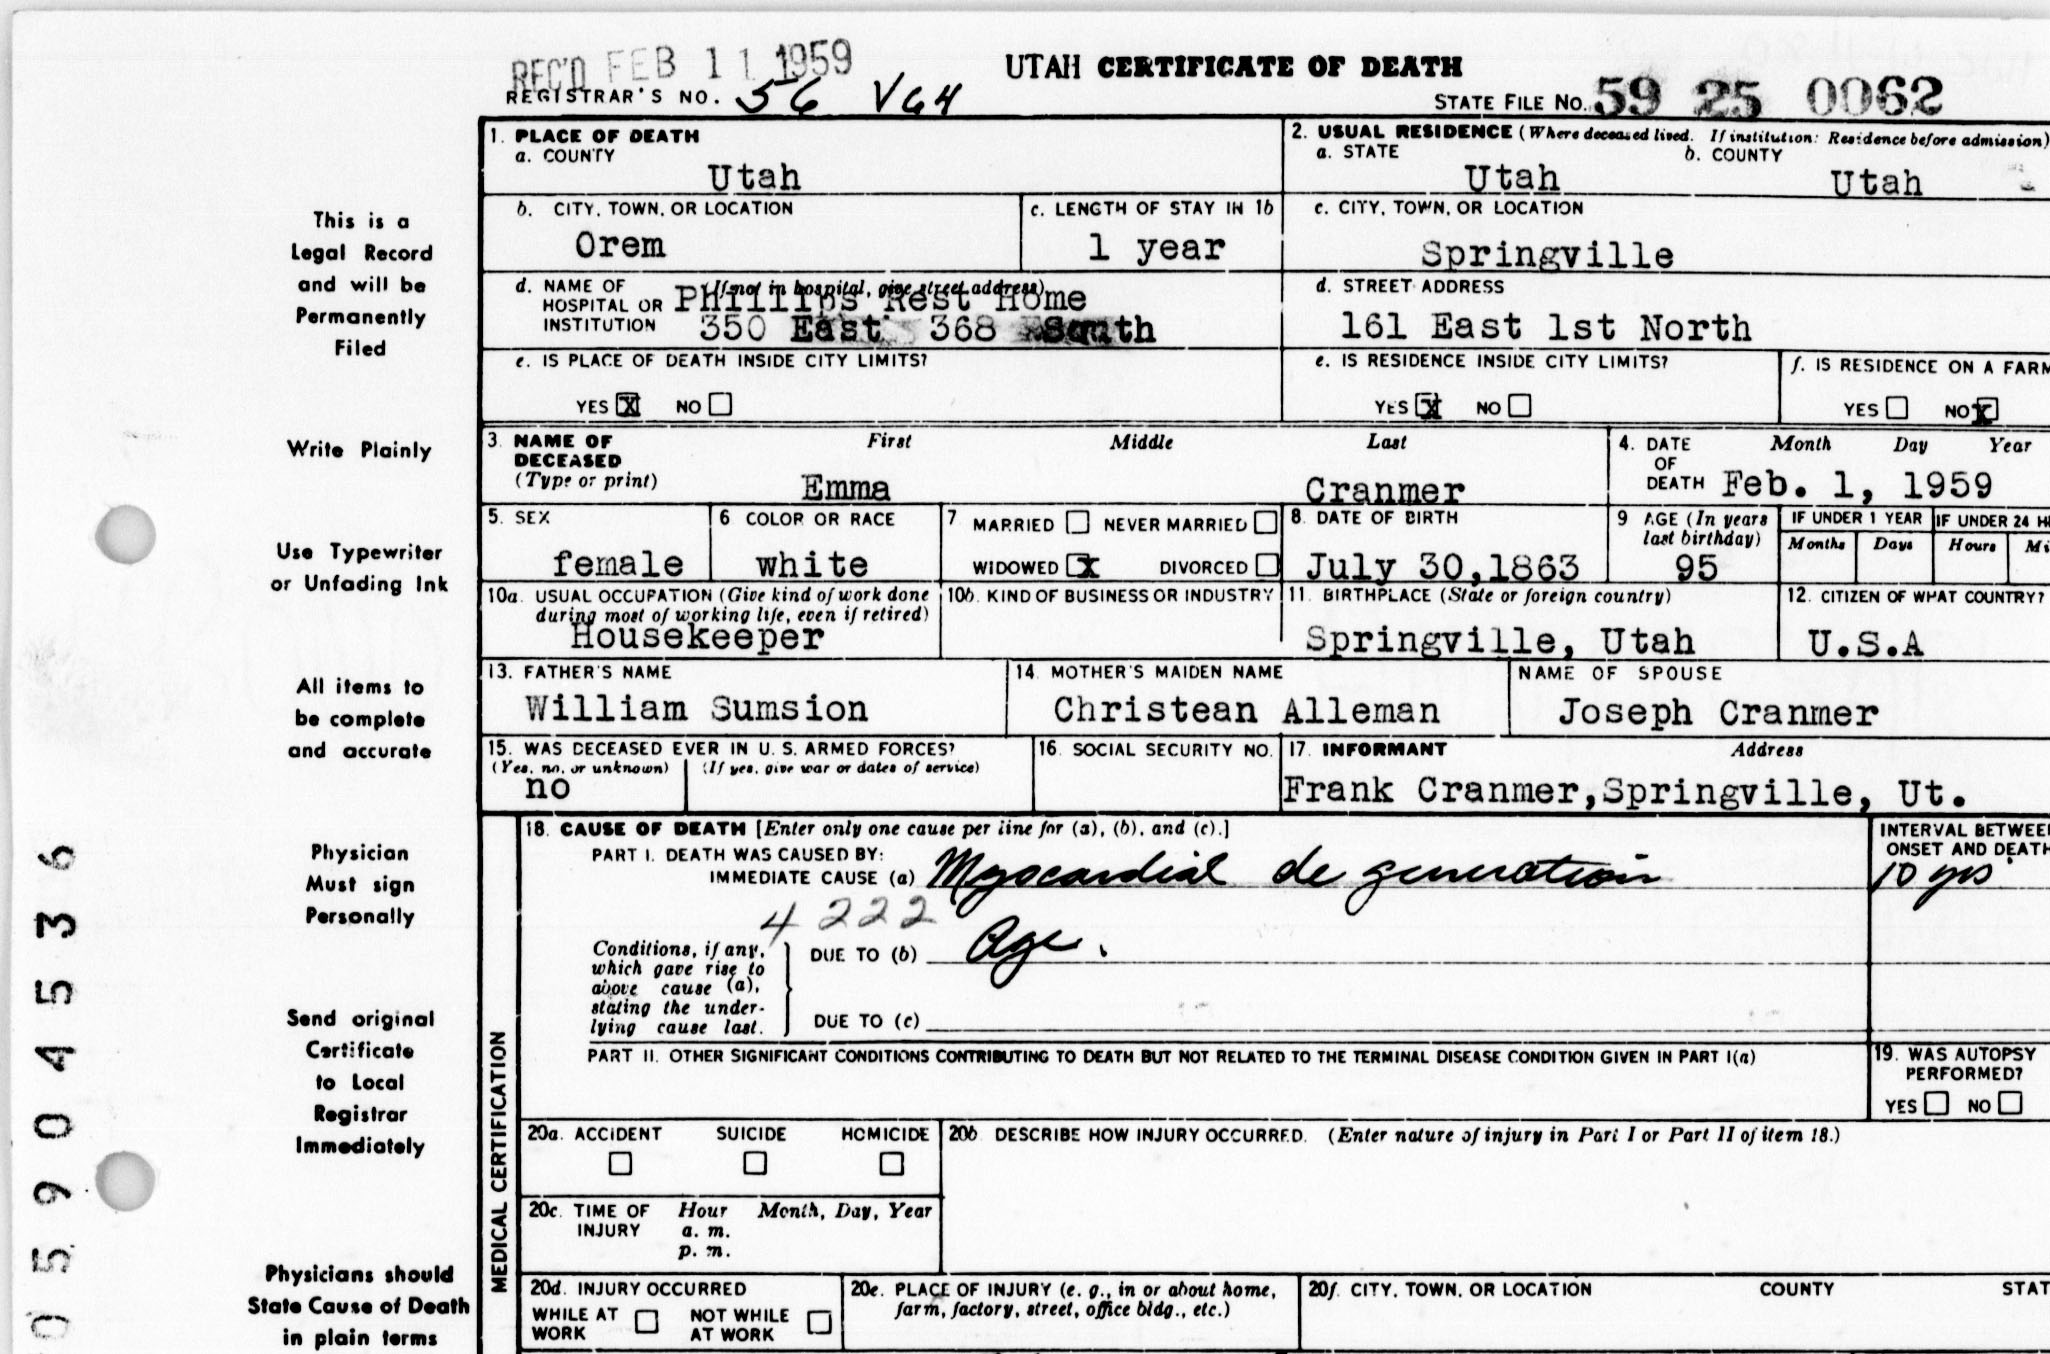 REC'D FEB 11 1959
UTAH CERTIFICATE OF DEATH
REGISTRAR'S NO. 56 V64
STATE FILE No. 59 25 0062
This is a
Legal Record
and will be
Permanently
Filed
Write Plainly
Use Typewriter
or Unfading Ink
All items to
be complete
and accurate
Physician
Must sign
Personally
Send original
Certificate
to Local
Registrar
Immediately
Physicians should
State Cause of Death
in plain terms
0 5 9 0 4 5 3 6
1. PLACE OF DEATH
a. COUNTY
Utah
2. USUAL RESIDENCE (Where deceased lived. If institution: Residence before admission)
a. STATE b. COUNTY
Utah Utah
b. CITY, TOWN, OR LOCATION
Orem
c. LENGTH OF STAY IN 1b
1 year
c. CITY, TOWN, OR LOCATION
Springville
d. NAME OF (If not in hospital, give street address)
HOSPITAL OR Phillips Rest Home
INSTITUTION 350 East 368 South
d. STREET ADDRESS
161 East 1st North
e. IS PLACE OF DEATH INSIDE CITY LIMITS?
YES X NO
e. IS RESIDENCE INSIDE CITY LIMITS?
YES X NO
f. IS RESIDENCE ON A FARM
YES NO X
3. NAME OF First Middle Last
DECEASED
(Type or print) Emma Cranmer
4. DATE Month Day Year
OF
DEATH Feb. 1, 1959
5. SEX
female
6 COLOR OR RACE
white
7 MARRIED NEVER MARRIED
WIDOWED X DIVORCED
8. DATE OF BIRTH
July 30,1863
9 AGE (In years
last birthday)
95
IF UNDER 1 YEAR
Months Days
IF UNDER 24 H
Hours Mi
10a. USUAL OCCUPATION (Give kind of work done
during most of working life, even if retired)
Housekeeper
10b. KIND OF BUSINESS OR INDUSTRY
11. BIRTHPLACE (State or foreign country)
Springville, Utah
12. CITIZEN OF WHAT COUNTRY?
U.S.A
13. FATHER'S NAME
William Sumsion
14. MOTHER'S MAIDEN NAME
Christean Alleman
NAME OF SPOUSE
Joseph Cranmer
15. WAS DECEASED EVER IN U. S. ARMED FORCES?
(Yes, no, or unknown) (If yes, give war or dates of service)
no
16. SOCIAL SECURITY NO.
17. INFORMANT Address
Frank Cranmer,Springville, Ut.
MEDICAL CERTIFICATION
18. CAUSE OF DEATH [Enter only one cause per line for (a), (b), and (c).]
PART I. DEATH WAS CAUSED BY:
IMMEDIATE CAUSE (a) Myocardial de generation
INTERVAL BETWEEN
ONSET AND DEATH
10 yrs
4222
Conditions, if any,
which gave rise to
above cause (a),
stating the under-
lying cause last.
DUE TO (b) Age.
DUE TO (c)
PART II. OTHER SIGNIFICANT CONDITIONS CONTRIBUTING TO DEATH BUT NOT RELATED TO THE TERMINAL DISEASE CONDITION GIVEN IN PART I(a)
19. WAS AUTOPSY
PERFORMED?
YES NO
20a. ACCIDENT SUICIDE HOMICIDE
20b DESCRIBE HOW INJURY OCCURRED. (Enter nature of injury in Part I or Part II of item 18.)
20c. TIME OF Hour Month, Day, Year
INJURY a. m.
p. m.
20d. INJURY OCCURRED
WHILE AT NOT WHILE
WORK AT WORK
20e. PLACE OF INJURY (e. g., in or about home,
farm, factory, street, office bldg., etc.)
20f. CITY, TOWN, OR LOCATION COUNTY STAT